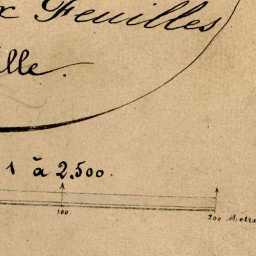 x Feuilles
lle.
1 à 2.500.
100
200 Mètre